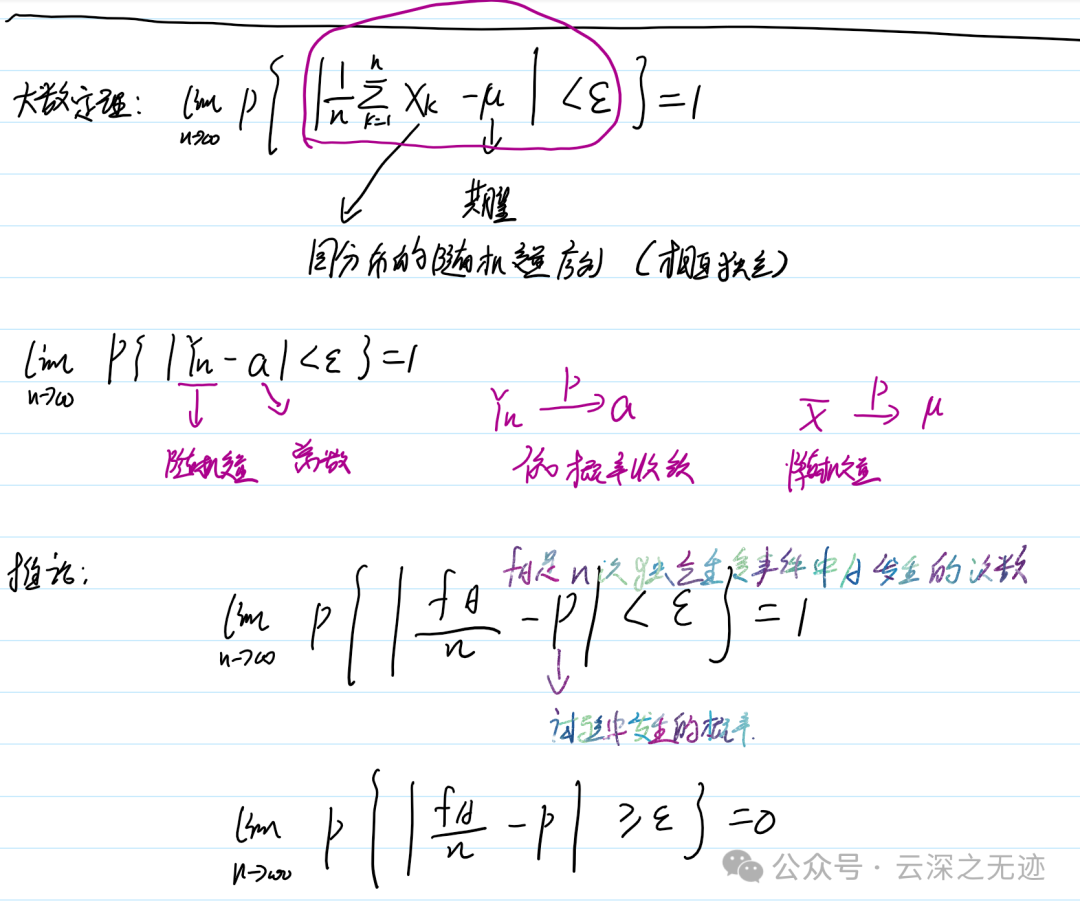 大数定理: lim n→∞ P{ | 1/n ∑ k=1 n Xk - μ | < ε } = 1
期望
同分布的随机变量序列 (相互独立)
lim n→∞ P{ | Yn - a | < ε } = 1
Yn —P→ a X̄ —P→ μ
随机变量 常数 依概率收敛 随机变量
推论: fA是n次独立重复事件中A发生的次数
lim n→∞ P{ | fA/n - p | < ε } = 1
试验中发生的概率.
lim n→∞ P{ | fA/n - p | ≥ ε } = 0
公众号 · 云深之无迹